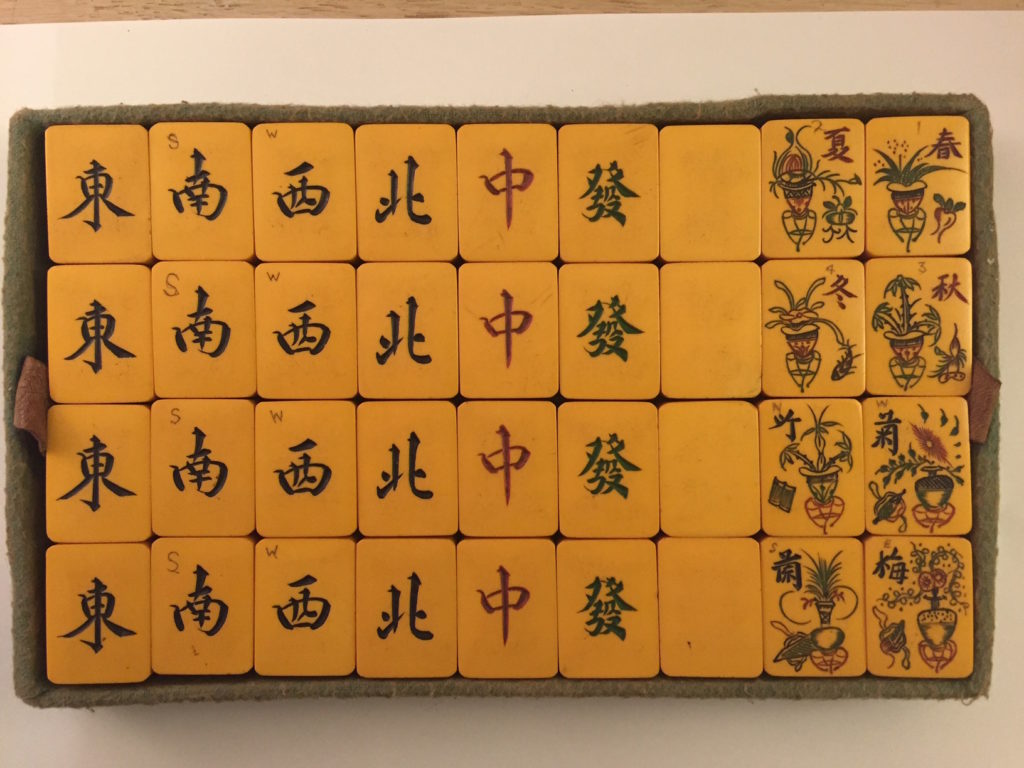 東 S 南 W 西 北 中 發 2 夏 1 春
東 S 南 W 西 北 中 發 4 冬 3 秋
東 S 南 W 西 北 中 發 N 竹 W 菊
東 S 南 W 西 北 中 發 S 蘭 E 梅